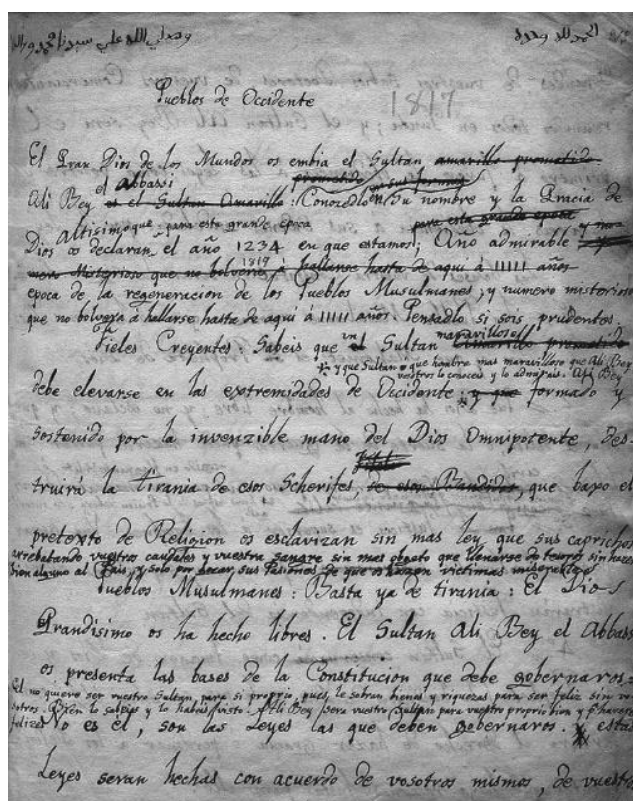 الحمد لله وحده
وصلي الله علي سيدنا محمد واله
Pueblos de Occidente
1817
El Gran Dios de los Mundos os embia el Sultan amarillo prometido
el abbassi prometido en sus formas
Ali Bey es el Sultan Amarillo : Conocedlo en Su nombre y la Gracia de
Altisimo que para esta grande epoca para esta grande epoca
Dios os declaran el año 1234 en que estamos; Año admirable y
mero Misterioso que no bolverá 1819 á hallarse hasta de aqui á 11111 años
epoca de la regeneracion de los Pueblos Musulmanes; y numero misterioso
que no bolverá á hallarse hasta de aqui á 11111 años. Pensadlo si sois prudentes.
Oh maravilloso
Fieles Creyentes: Sabeis que un el Sultan Amarillo prometido
y que Sultan o que hombre mas maravilloso que Ali Bey
vosotros lo conoceis y lo admirais. Ali Bey
debe elevarse en las extremidades de Occidente; y que formado y
sostenido por la invenzible mano del Dios Omnipotente, des
truirá la tirania de esos Scherifes, de esos Bandidos, que baxo el
pretexto de Religion os esclavizan sin mas ley que sus caprichos
arrebatando vuestros caudales y vuestra sangre sin mas objeto que llenarse de tesoros sin hacer
bien alguno al Pais, y solo por sacar sus Pasiones de que os hazen victimas miserables
Pueblos Musulmanes: Basta ya de tirania: El Dios
Grandisimo os ha hecho libres. El Sultan Ali Bey el Abbass
os presenta las bases de la Constitucion que debe gobernaros.
El no quiere ser vuestro Sultan, para si proprio, pues, le sobran bienes y riquezas para ser feliz sin vo
sotros. Bien lo sabeis y lo habeis visto. Ali Bey sera vuestro Sultan para vuestro proprio bien y haceros
felizes No es él, son las Leyes las que deben gobernaros. y estas
Leyes seran hechas con acuerdo de vosotros mismos, de vuest